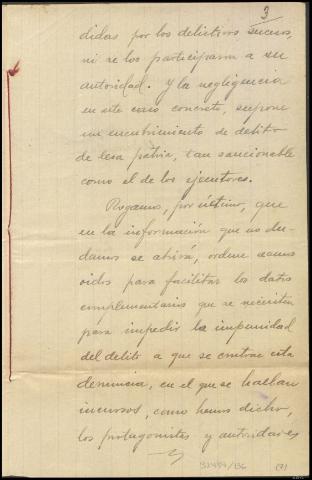 3
didas por los delictivos sucesos,
ni se los participaran a su
autoridad. Y la negligencia
en este caso concreto, supone
un encubrimiento de delito
de lesa pátria, tan sancionable
como el de los ejecutores.
Rogamos, por último, que
en la información que no du-
damos se abrirá, ordene seamos
oidos para facilitar los datos
complementarios que se necesiten
para impedir la impunidad
del delito a que se contrae esta
denuncia, en el que se hallan
incursos, como hemos dicho,
los protagonistas y autoridades